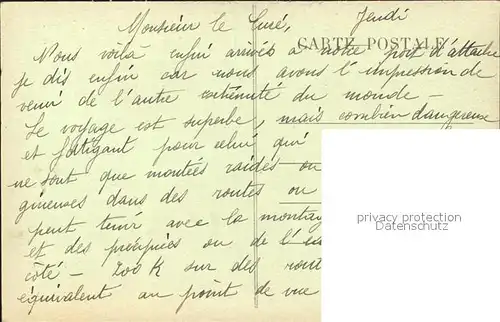 Monsieur le Curé, Jeudi
CARTE POSTALE
Nous voilà enfin arrivés à notre port d'attache
je dis enfin car nous avons l'impression de
venir de l'autre extrémité du monde -
Le voyage est superbe, mais combien dangereuse
et fatigant pour celui qui
ne sont que montées raides ou
gineuses dans des routes ou
peut tenir avec la montag
et des précipices ou de l'
côté - 200 K sur des rout
équivalent au point de vue
privacy protection
Datenschutz